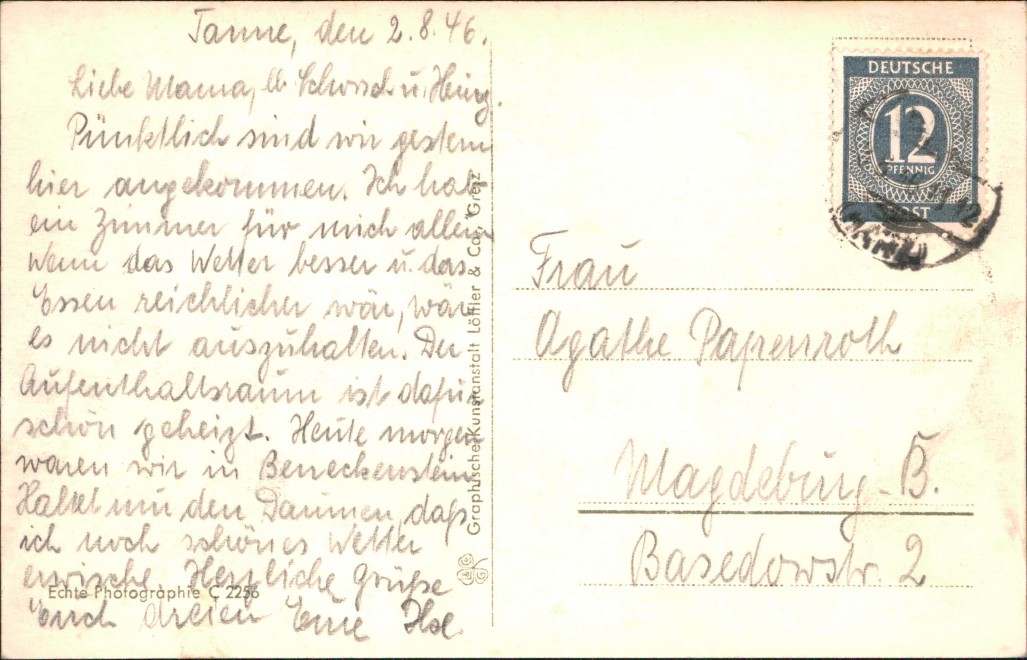 Tanne, den 2.8.46.
Liebe Mama, lb. Schorsch u. Heinz.
Pünktlich sind wir gestern
hier angekommen. Ich habe
ein Zimmer für mich allein
Wenn das Wetter besser u. das
Essen reichlicher wär, wär
es nicht auszuhalten. Der
Aufenthaltsraum ist dafür
schön geheizt. Heute morgen
waren wir in Beneckenstein
Haltet mir den Daumen, daß
ich noch schönes Wetter
erwische. Herzliche Grüße
Euch dreien Eure Ilse
Echte Photographie C 2256
Graphische Kunstanstalt Löffler & Co., Greiz
DEUTSCHE
12
PFENNIG
POST
Frau
Agathe Papenroth
Magdeburg-B.
Basedowstr. 2